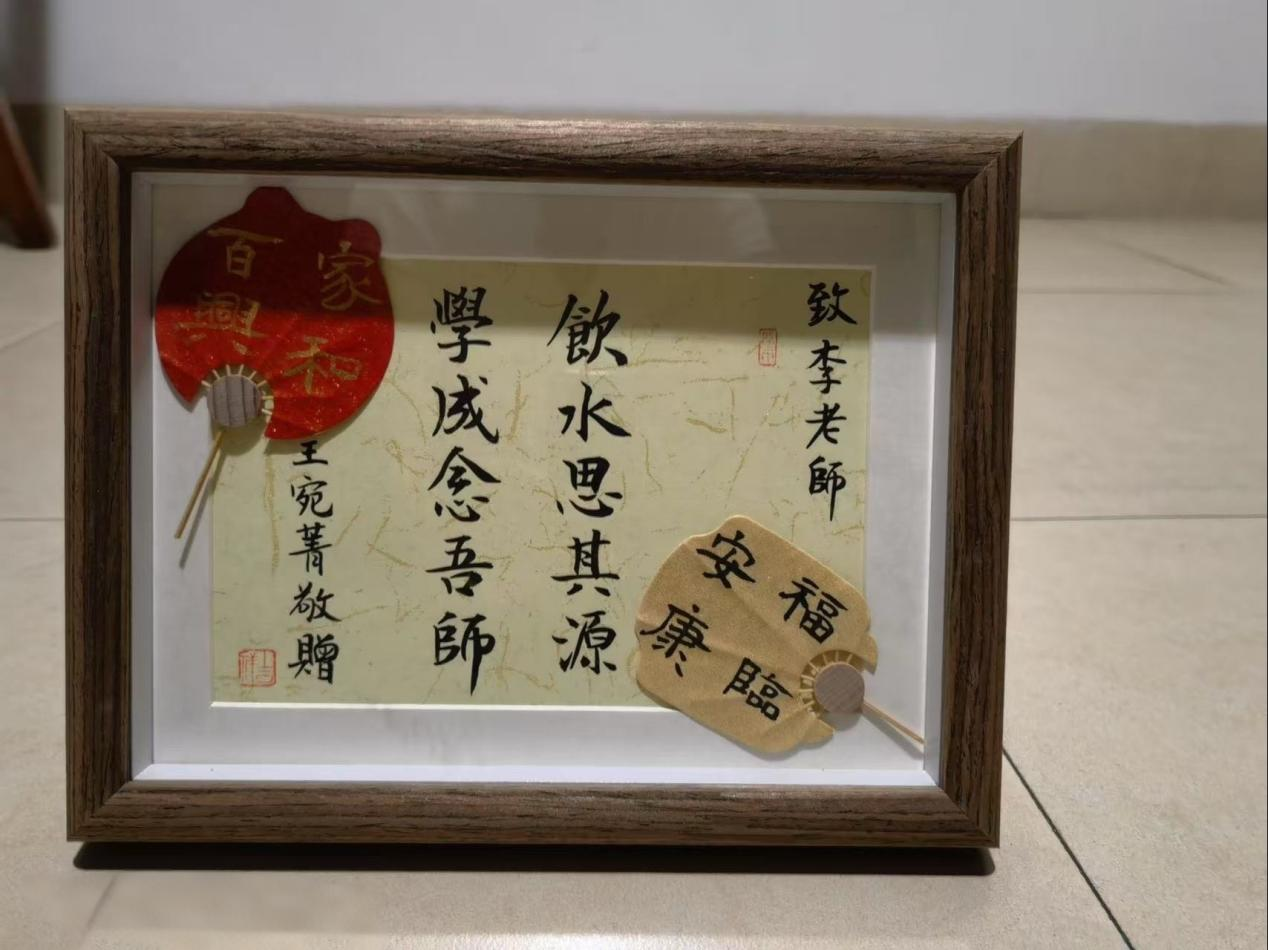 致李老師
飲水思其源
學成念吾師
王宛菁敬贈
家和
百興
福臨
安康